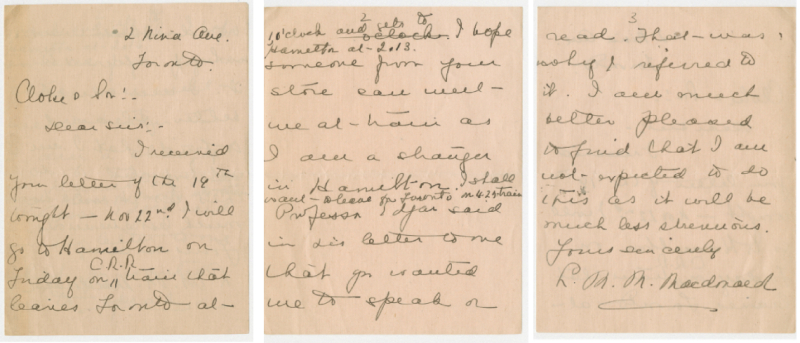 2 Nina Ave.
Toronto.
Cloke & Son:-
Dear Sirs:-
I received
your letter of the 19th
tonight - Nov 22nd. I will
go to Hamilton on
Friday on C.P.R. train that
leaves Toronto at-
2
1 o'clock and gets to
Hamilton at- 2.13. I hope
someone from your
store can meet-
me at- train as
I am a stranger
in Hamilton. I shall
want- to leave for Toronto on train
Professor said
in his letter to me
that you wanted
me to speak or
3
read. That- was
why I referred to
it. I am much
better pleased
to find that I am
not- expected to do
this as it will be
much less strenuous.
Yours sincerely
L. M. M. Macdonald